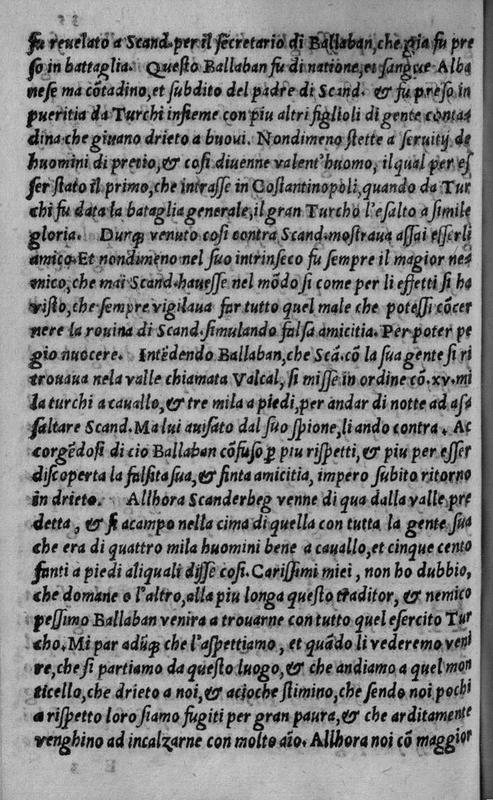 fu reuelato a Scand. per il secretario di Ballaban, che gia fu pre
so in battaglia. Questo Ballaban fu di natione, et sangue Alba
nese ma cōtadino, et subdito del padre di Scand. & fu preso in
pueritia da Turchi insieme con piu altri figlioli di gente conta=
dina che giuano drieto a buoui. Nondimeno stette a seruitÿ de
huomini di pretio, & cosi diuenne valent'huomo, il qual per es
ser stato il primo, che intrasse in Costantinopoli, quando da Tur
chi fu data la bataglia generale, il gran Turcho l'esalto a simile
gloria. Durq; venuto cosi contra Scand. mostraua assai esserli
amico. Et nondimeno nel suo intrinseco fu sempre il magior ne=
mico, che mai Scand. hauesse nel mōdo si come per li effetti si ha
visto, che sempre vigilaua far tutto quel male che potessi cōcer
nere la rouina di Scand. simulando falsa amicitia. Per poter pe
gio nuocere. Intēdendo Ballaban, che Scā. cō la sua gente si ri
trouaua nela valle chiamata Valcal, si misse in ordine cō. xv. mi
la turchi a cauallo, & tre mila a piedi, per andar di notte ad asa
saltare Scand. Ma lui auisato dal suo spione, li ando contra. Ac
corgēdosi di cio Ballaban cōfuso ꝑ piu rispetti, & piu per esser
discoperta la falsita sua, & finta amicitia, impero subito ritorno
in drieto. Allhora Scanderbeg venne di qua dalla valle pre
detta, & si acampo nella cima di quella con tutta la gente sua
che era di quattro mila huomini bene a cauallo, et cinque cento
fanti a piedi aliquali disse cosi. Carissimi miei, non ho dubbio,
che domane o l'altro, alla piu longa questo traditor, & nemico
pessimo Ballaban venira a trouarne con tutto quel esercito Tur
cho. Mi par adūq; che l'aspettiamo, et quādo li vederemo veni
re, che si partiamo da questo luogo, & che andiamo a quel mon
ticello, che drieto a noi, & acioche stimino, che sendo noi pochi
a rispetto loro siamo fugiti per gran paura, & che arditamente
venghino ad incalzarne con molto aīo. Allhora noi cō maggior